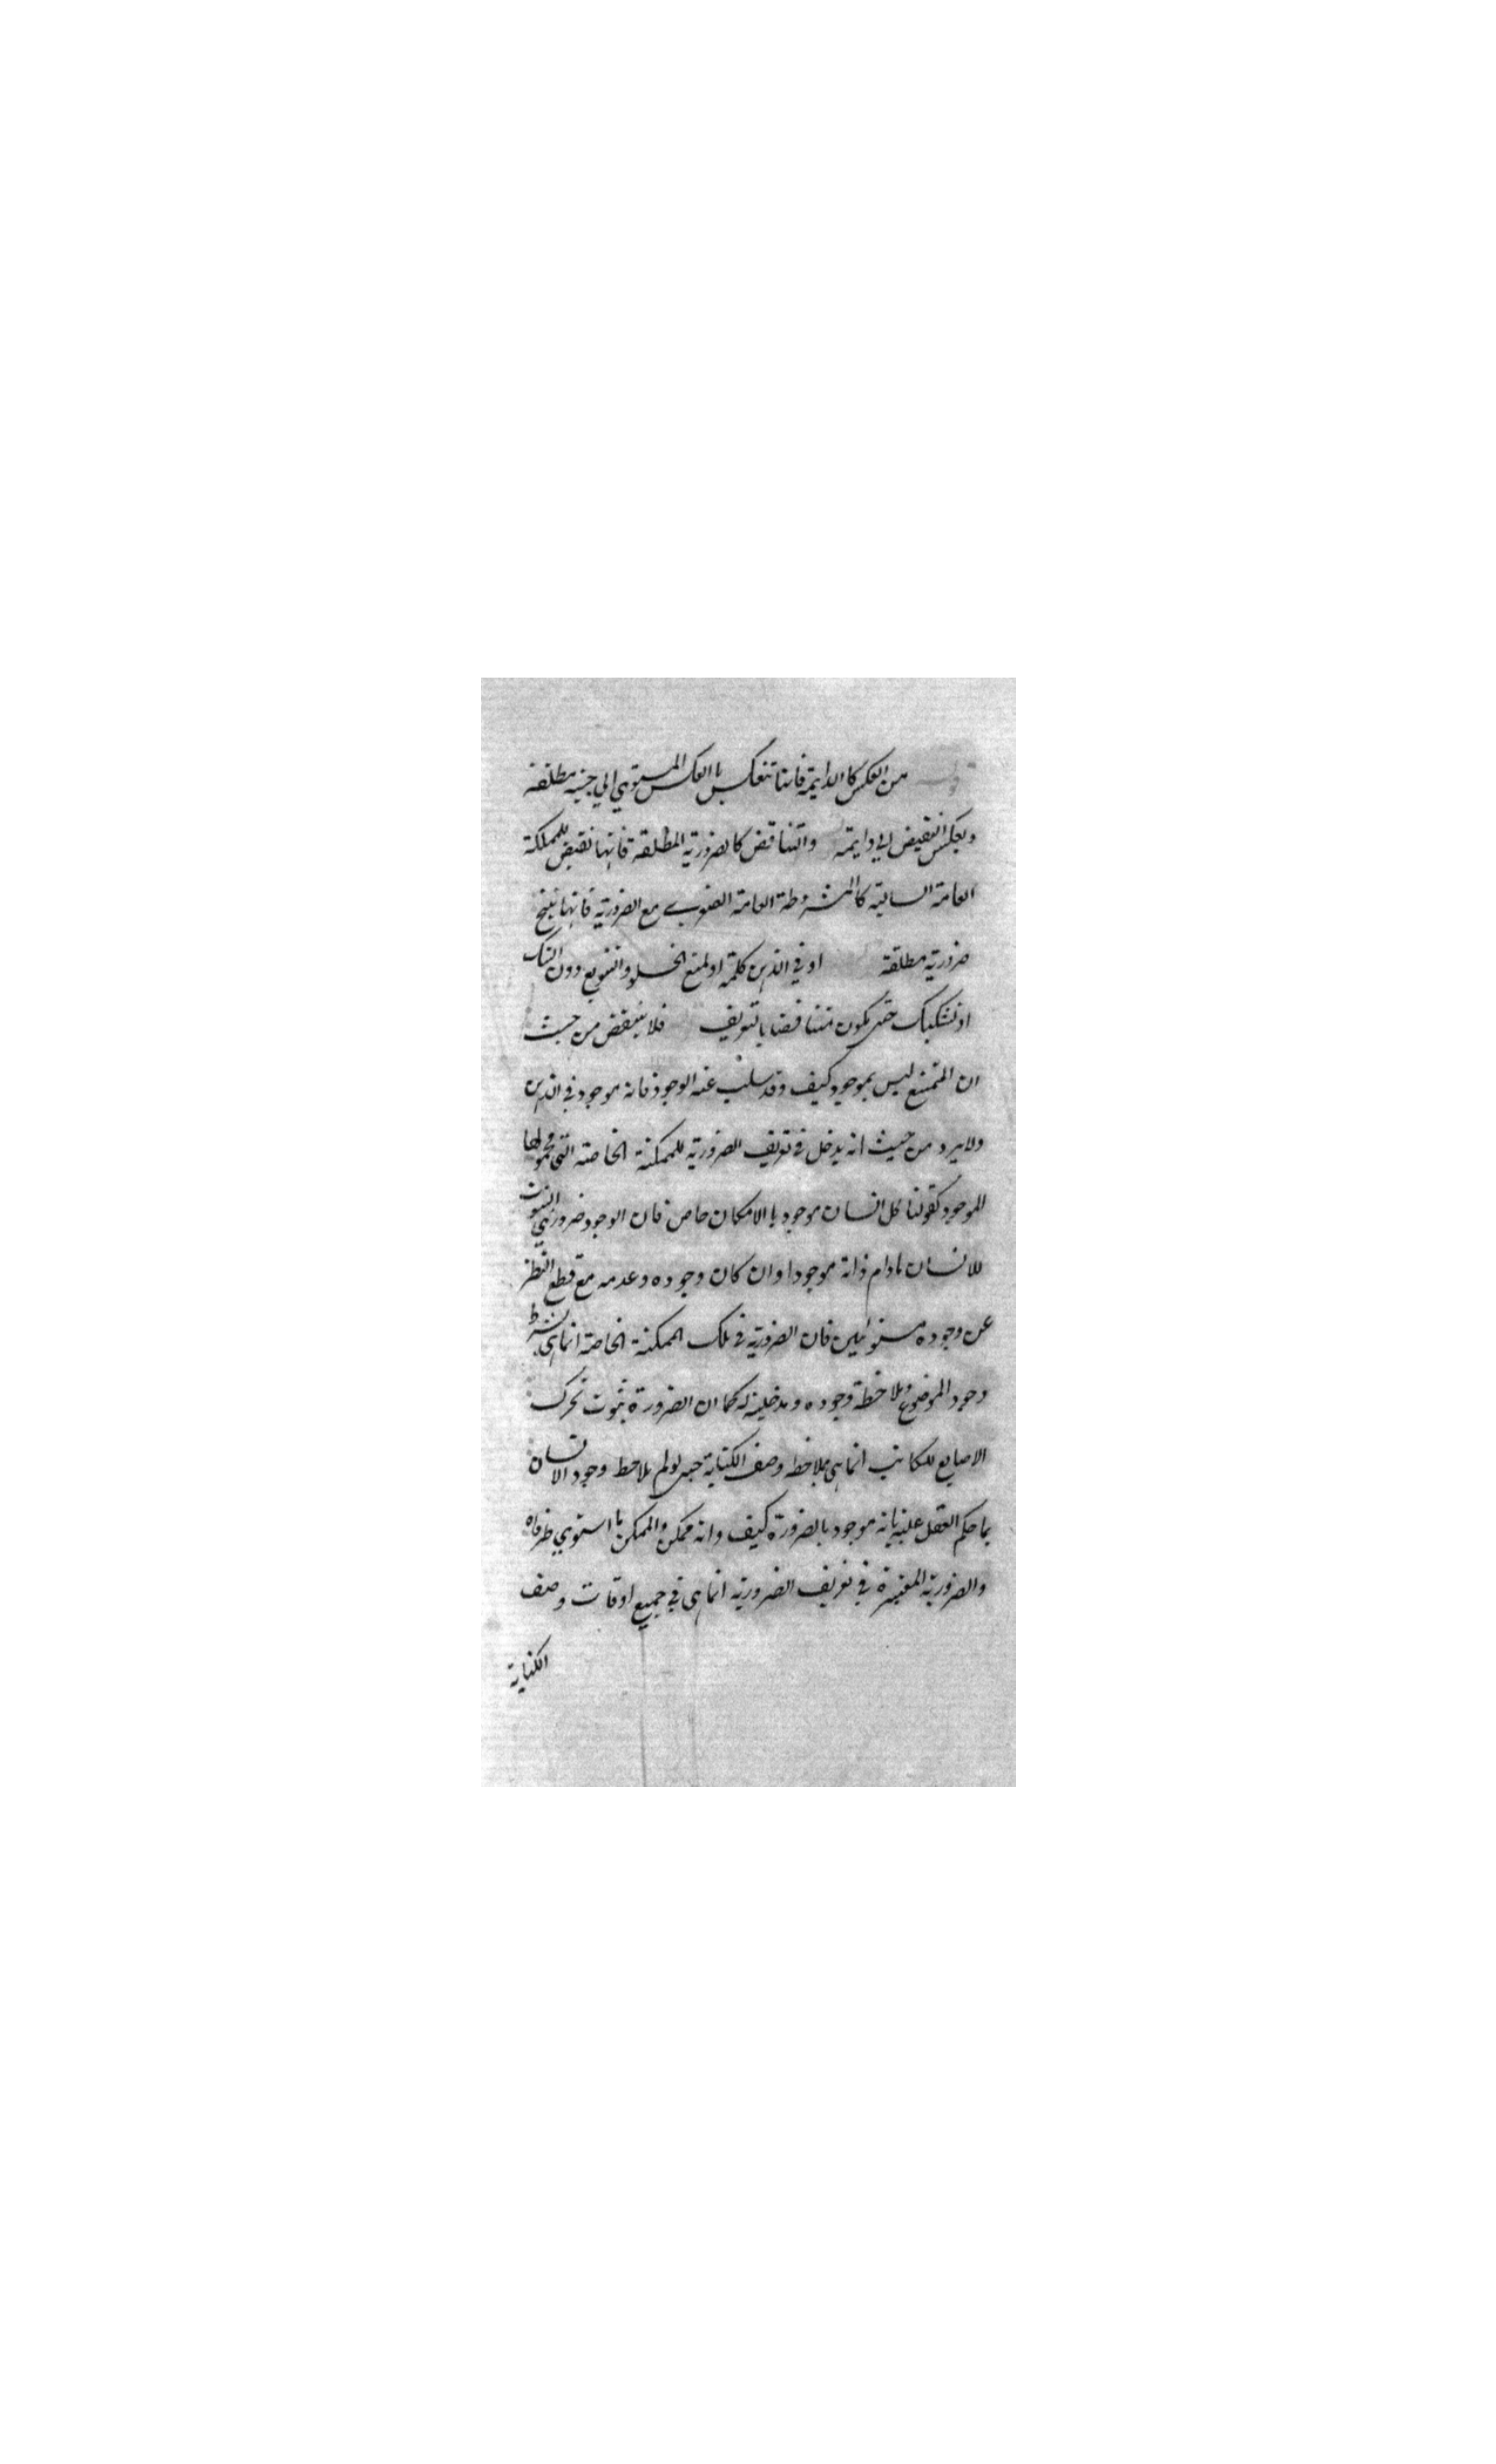 قوله من العكس كالدايمة فانها تنعكس بالعكس المستوي الي حينية مطلقة
وبعكس النقيض الي دايمة والتناقض كالضرورية المطلقة فانها نقيض للممكنة
العامة السالبة كالمشروطة العامة الصغرى مع الضرورية فانها ينتج
ضرورية مطلقة او في الذهن كلمة او لمنع الخلو والتنويع دون الشك
او تشكيك حتى يكون منافيا بالتعريف فلا ينتقض من حيث
ان الممتنع ليس بموجود كيف وقد سلب عنه الوجود فانه موجود في الذهن
ولا يرد من حيث انه يدخل في تعريف الضرورية للممكنة الخاصة التي محمولها
الموجود كقولنا كل انسان موجود بالامكان خاص فان الوجود ضروري الثبوت
للانسان مادام ذاته موجودا وان كان وجوده وعدمه مع قطع النظر
عن وجوده مستوائين فان الضرورية في تلك الممكنة الخاصة انما هي بشرط
وجود الموضوع وملاحظة وجوده ومدخلية له كما ان الضرورة بثبوت تحرك
الاصابع للكاتب انما هي بملاحظة وصف الكتابة حتى لو لم يلاحظ وجود الانسان
ما حكم العقل عليه بانه موجود بالضرورة كيف وانه ممكن والممكن ما استوي طرفاه
والضرورية المعتبرة في تعريف الضرورية انما هي في جميع اوقات وصف
الكتابة